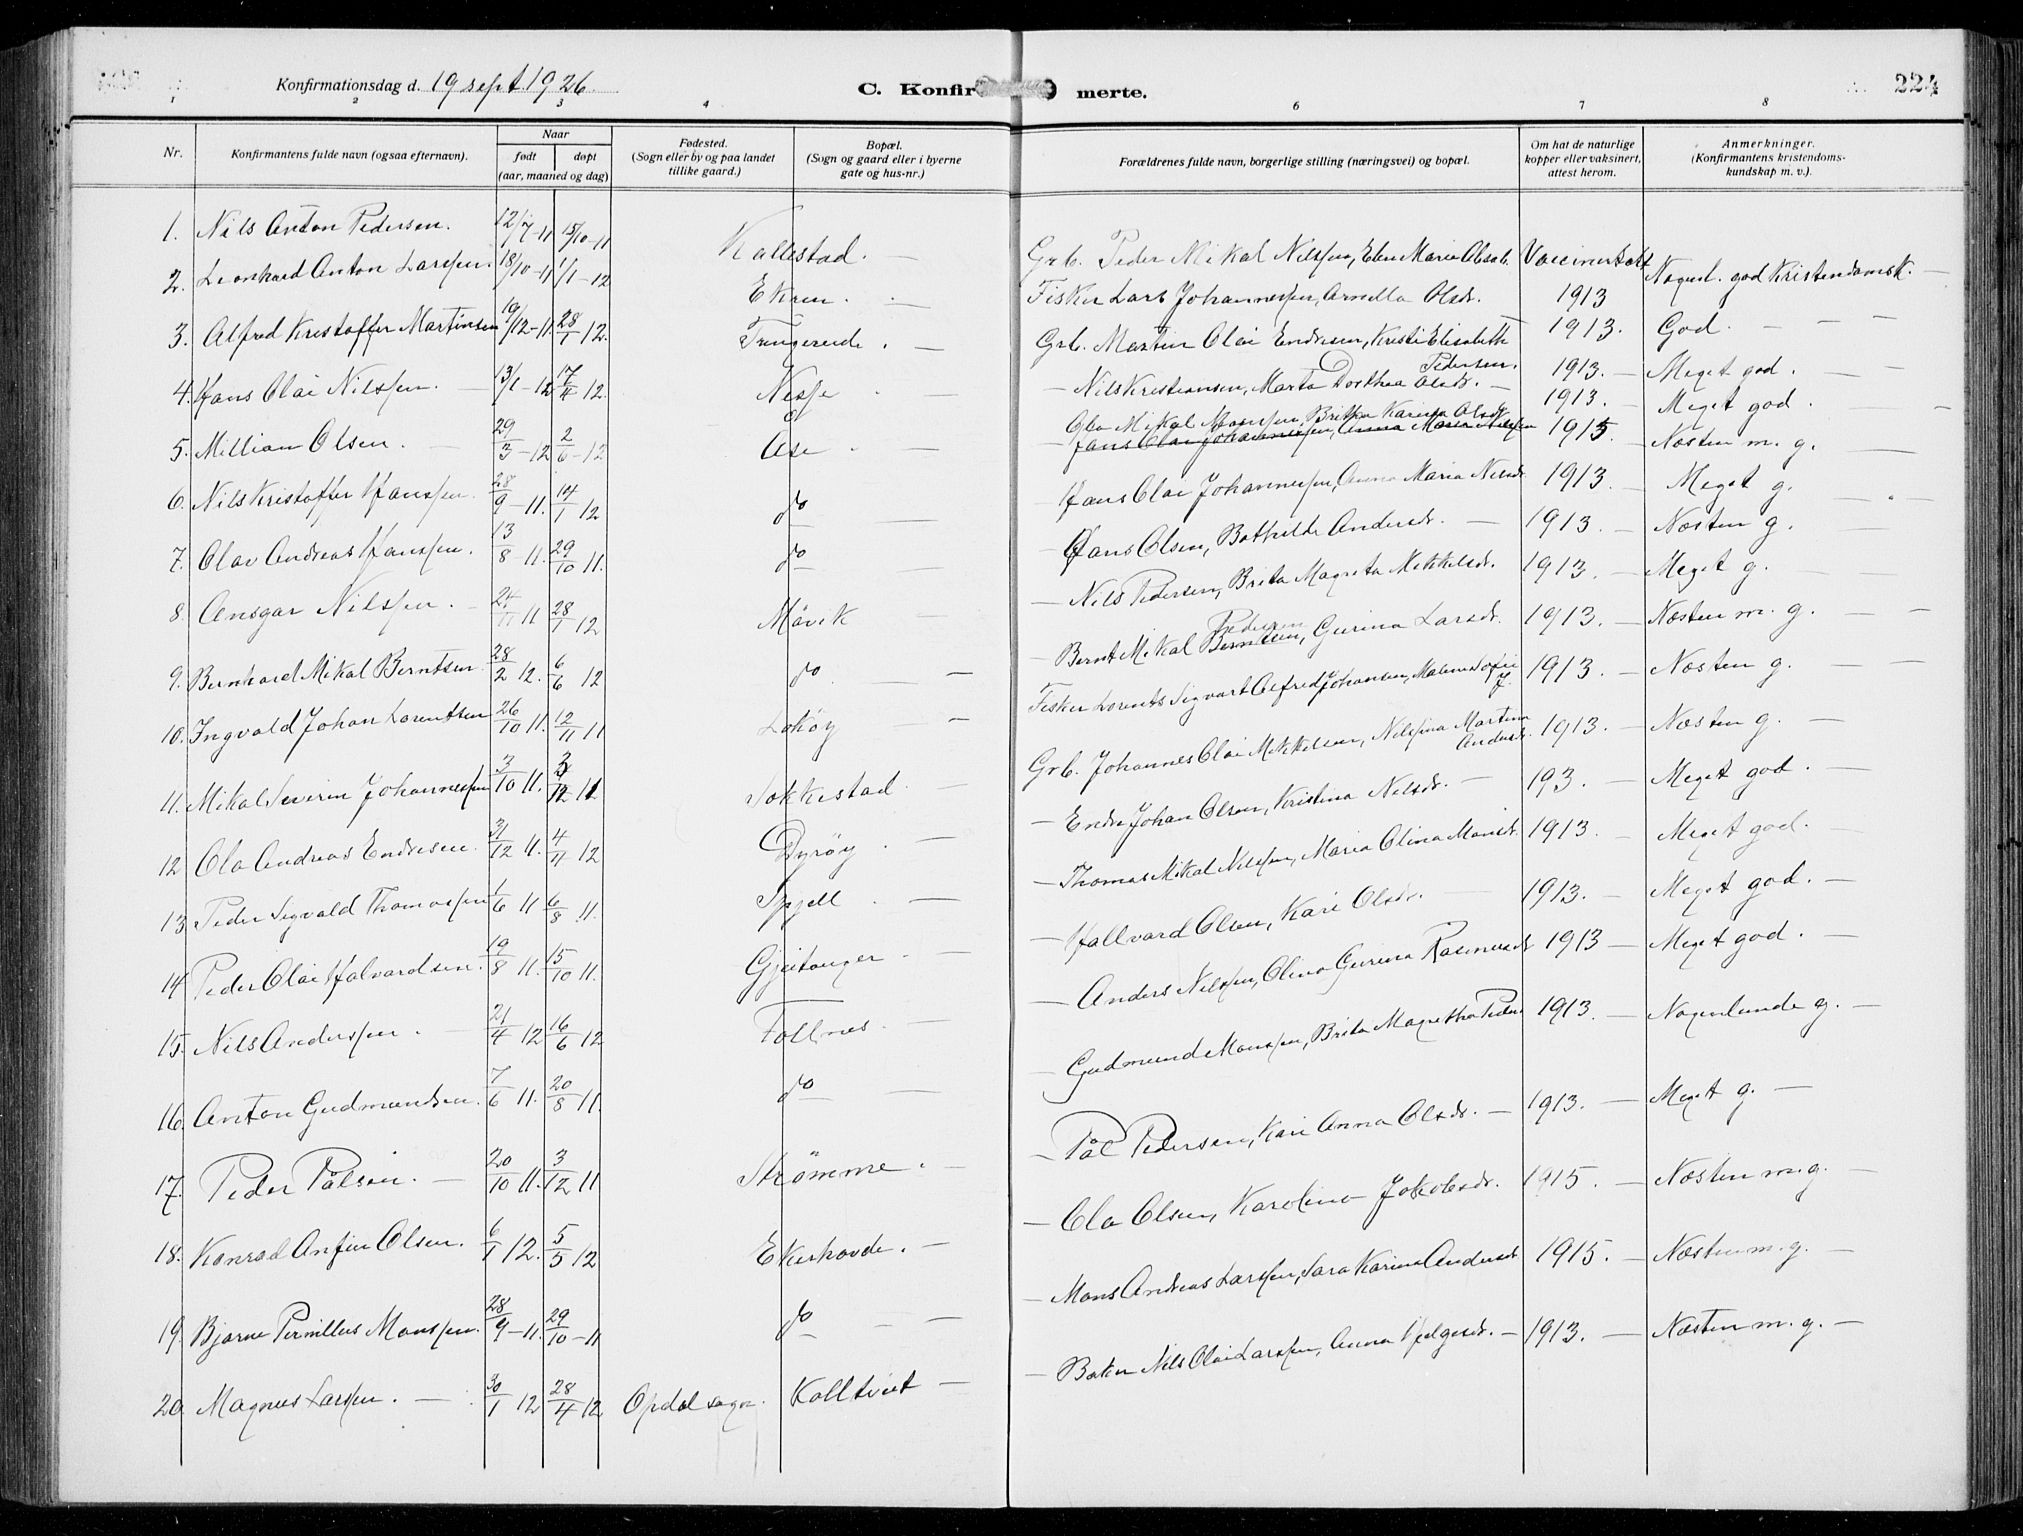 Konfirmationsdag d. 19 sept. 1926.
C. Konfirmerte.
224
1 2 3 4 6 7 8
Nr.
Konfirmantens fulde navn (ogsaa efternavn).
Naar
født døpt
(aar, maaned og dag)
Fødested.
(Sogn eller by og paa landet
tillike gaard.)
Bopæl.
(Sogn og gaard eller i byerne
gate og hus-nr.)
Forældrenes fulde navn, borgerlige stilling (næringsvei) og bopæl.
Om hat de naturlige
kopper eller vaksinert,
attest herom.
Anmerkninger.
(Konfirmantens kristendoms-
kundskap m. v.).
1. Nils Anton Pedersen. 12/7-11 15/10-11 Kallestad. — Grb. Peder Mikal Nilssen, Elen Maria Olsdr. Vaccinert att 1913 Nogenl. god Kristendomsk. —
2. Leonhard Anton Larssen. 18/10-11 1/1-12 Ekren. — Fisker Lars Johannessen, Arnella Olsdr. 1913. God. — — —
3. Alfred Kristoffer Martinsen 19/12-11. 28/1 12. Trengereide. — Grb. Martin Olai Endresen, Kristi Elisabeth Pedersen. 1913. — Meget god. —
4. Hans Olai Nilssen. — 13/1-12 17/4 12. Nesse — — Nils Kristiansen, Marta Dorthea Olsdr. — 1913. — Meget god. —
5. Millian Olsen. — 29/3-12 2/6-12 Åse. — — Ola Mikal Monssen, Britha Karina Olsdr. 1915. Næsten m. g. —
Hans Olai Johannessen, Anna Maria Nilssen
6. Nils Kristoffer Hanssen. 28/9-11. 14/1 12 do — — Hans Olai Johannessen, Anna Maria Nilsdr. 1913. — Meget g. —
7. Olav Andreas Hanssen. 13/8 11. 29/10 11. do — — Hans Olsen, Bothilde Andersdr. — 1913. — Næsten g. —
8. Ansgar Nilssen. — 24/11 11 28/1 12 Måvik — — Nils Pedersen, Brita Magreta Mikkelsdr. 1913. — Meget g. —
9. Bernhard Mikal Berntsen. 28/2 12. 6/6 12 do. — — Bernt Mikal Berntsen, Pedersen Gurina Larsdr. 1913. — Næsten m. g. — —
10. Ingvald Johan Lorentsen 26/10 11. 12/11 11 Lokøy — Fisker Lorents Sigvart Alfred Johansen, Malene Sofie J. 1913. — Næsten g. — —
11. Mikal Severin Johannessen 3/10 11. 3/12 11 Sokkestad. — Grb. Johannes Olai Mikkelsen, Nilssina Martina Andersdr. 1913. — Næsten g. —
12 Ola Andreas Endresen. 31/12 11. 4/4 12 Dyrøy. — — Endre Johan Olsen, Kristina Nilsdr. — 193. — Meget god. —
13 Peder Sigvald Thomassen 1/6 11 6/8 11. Spjell. — — Thomas Mikal Nilssen, Maria Olina Monsdr. 1913. — Meget god. —
14 Peder Olai Halvardsen. 19/8 11. 15/10 11. Gjeitanger. — — Hallvard Olsen, Kari Olsdr. — 1913. — Meget god. —
15. Nils Anderssen. — 21/4 12 16/6 12 Follnes. — — Anders Nilssen, Olina Gurina Rasmusdr 1913 — Meget god. —
16. Anton Gudmundsen. 7/6 11. 20/8 11. do — — Gudmund Monssen, Brita Magretha Peders 1913. — Nogenlunde g. —
17. Peder Pålsen. — 20/10 11. 3/12 11 Strømme. — — Pål Pedersen, Kari Anna Olsdr. — 1913. — Meget g. —
18. Konrad Anfin Olsen. 6/1 12. 5/5 12 Ekerhovde. — — Ola Olsen, Karolina Jakobsdr. 1915. — Næsten m. g. —
19. Bjarne Pernillus Monssen. 28/9-11. 29/10-11 do — — — Mons Andreas Larssen, Sara Karina Andersdr 1915. — Næsten m. g. —
20. Magnus Larssen. — 30/1 12 28/4 12 Opdal sogn. Kolltveit — — Baker Nils Olai Larssen, Anna Helgesdr. — 1913. — Næsten m. g. —